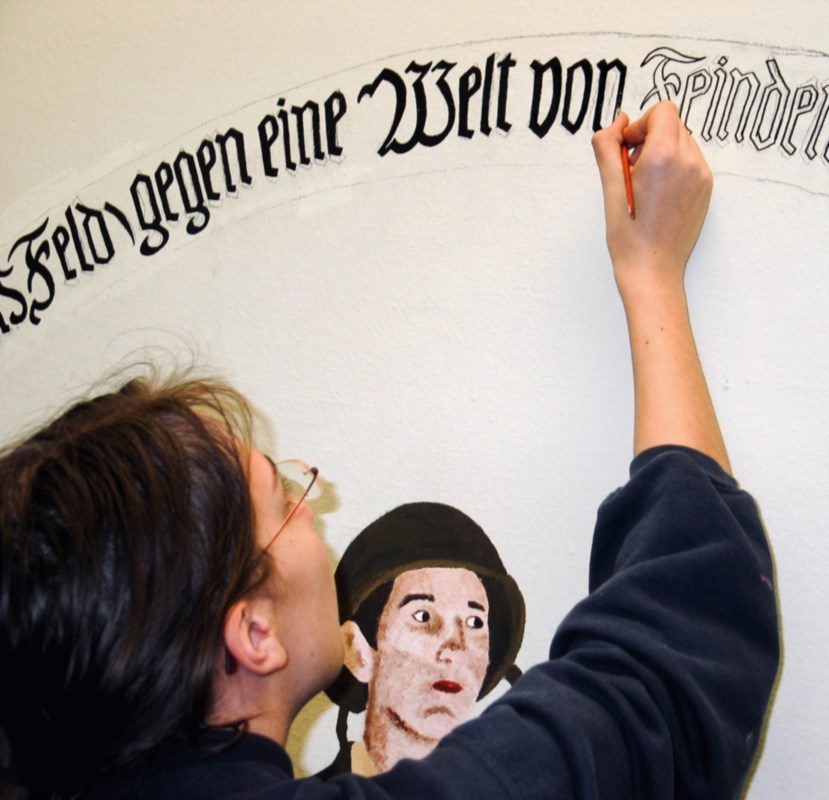 s Feld) gegen eine Welt von Feinden